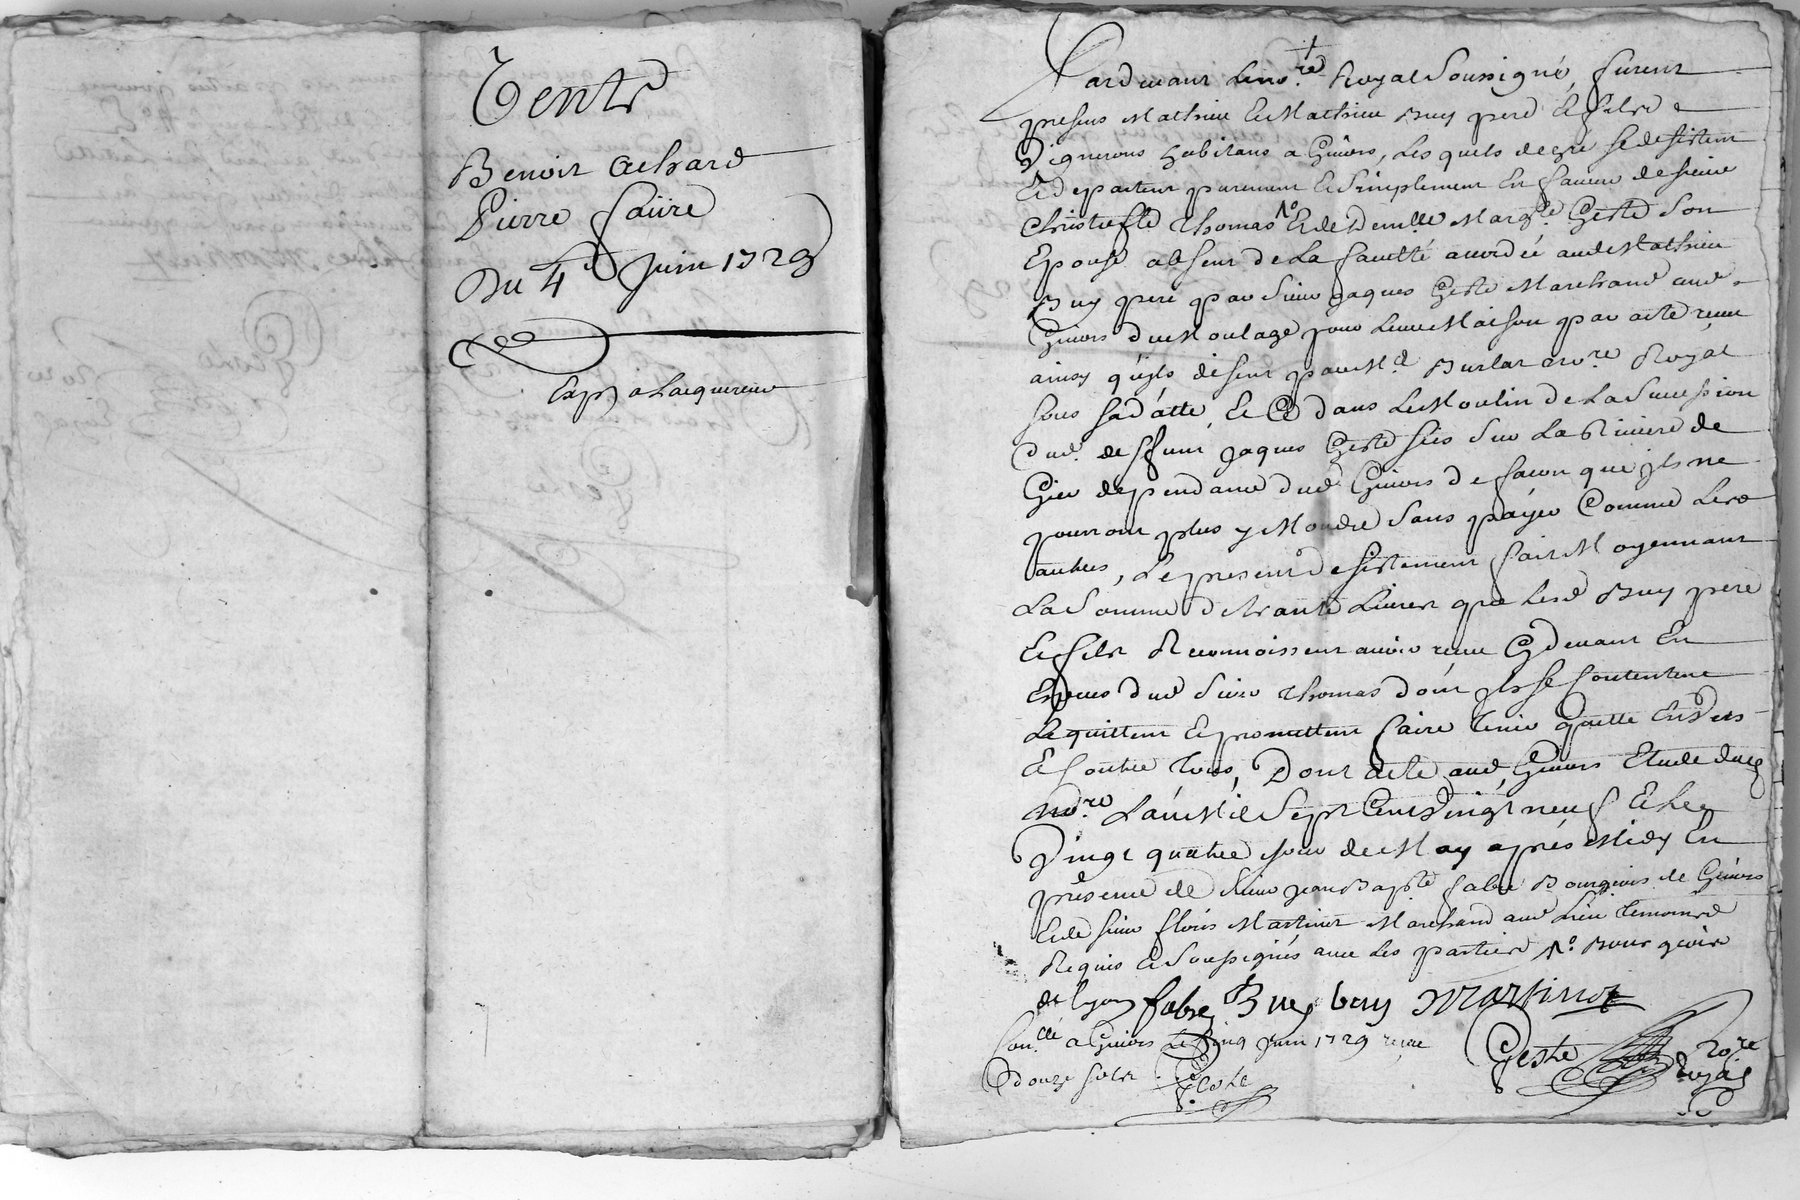 Vente
Benoit Achard
Pierre Faure
Du 4e Juin 1729
Exp a Lacquereur
Pardevant Le no.re Royal Soussigné, furent
presens Mathieu & Mathieu Buy pere & fils
Vignerons habitans a Givors, Lesquels de gre se desistent
Et departent purement & simplement En faveur de sieur
Christofle Thomas No Et de Dem.lle Marg.te Geste Son
Epouse absent de La faculté accordée aud Mathieu
Buy pere par Sieur Jaques Geste Marchand aud
Givors du Moulage pour Leur Maison par acte recu
ainsy qu'ils disent par M.e Burlat no.re Royal
sous sa datte, & Ce dans Le Moulin de La Succession
dud. deffunt Jaques Geste sis Sur La Riviere de
Gier dependance dud Givors de facon que jls ne
pourront plus y Moudre Sans payer Comme Les
autres, Le present desistement fait Moyennant
La Somme de trante Livres que Lesd Buy pere
& fils Reconnoissent avoir receu Cy devant En
Especes dud Sieur Thomas dont jls se Contentent
Le quittent & promettent faire tenir quitte Envers
& Contre tous, Dont acte aud Givors Etude dud
no.re L'an Mil Sept Cents Vingt neuf & Le
Vingt quatre jour de May aprés Midy En
présence de Sieur Jean Bapte fabre Bourgeois de Givors
Et de sieur Martinot Marchand aud Lieu temoins
Requis & Soussignés avec Les parties No Bourgeois
de Lyon fabre Buy buy Martinot
Con.llé a Givors Le Cinq Juin 1729 recue
douze sols Geste
Geste no.re
Royal